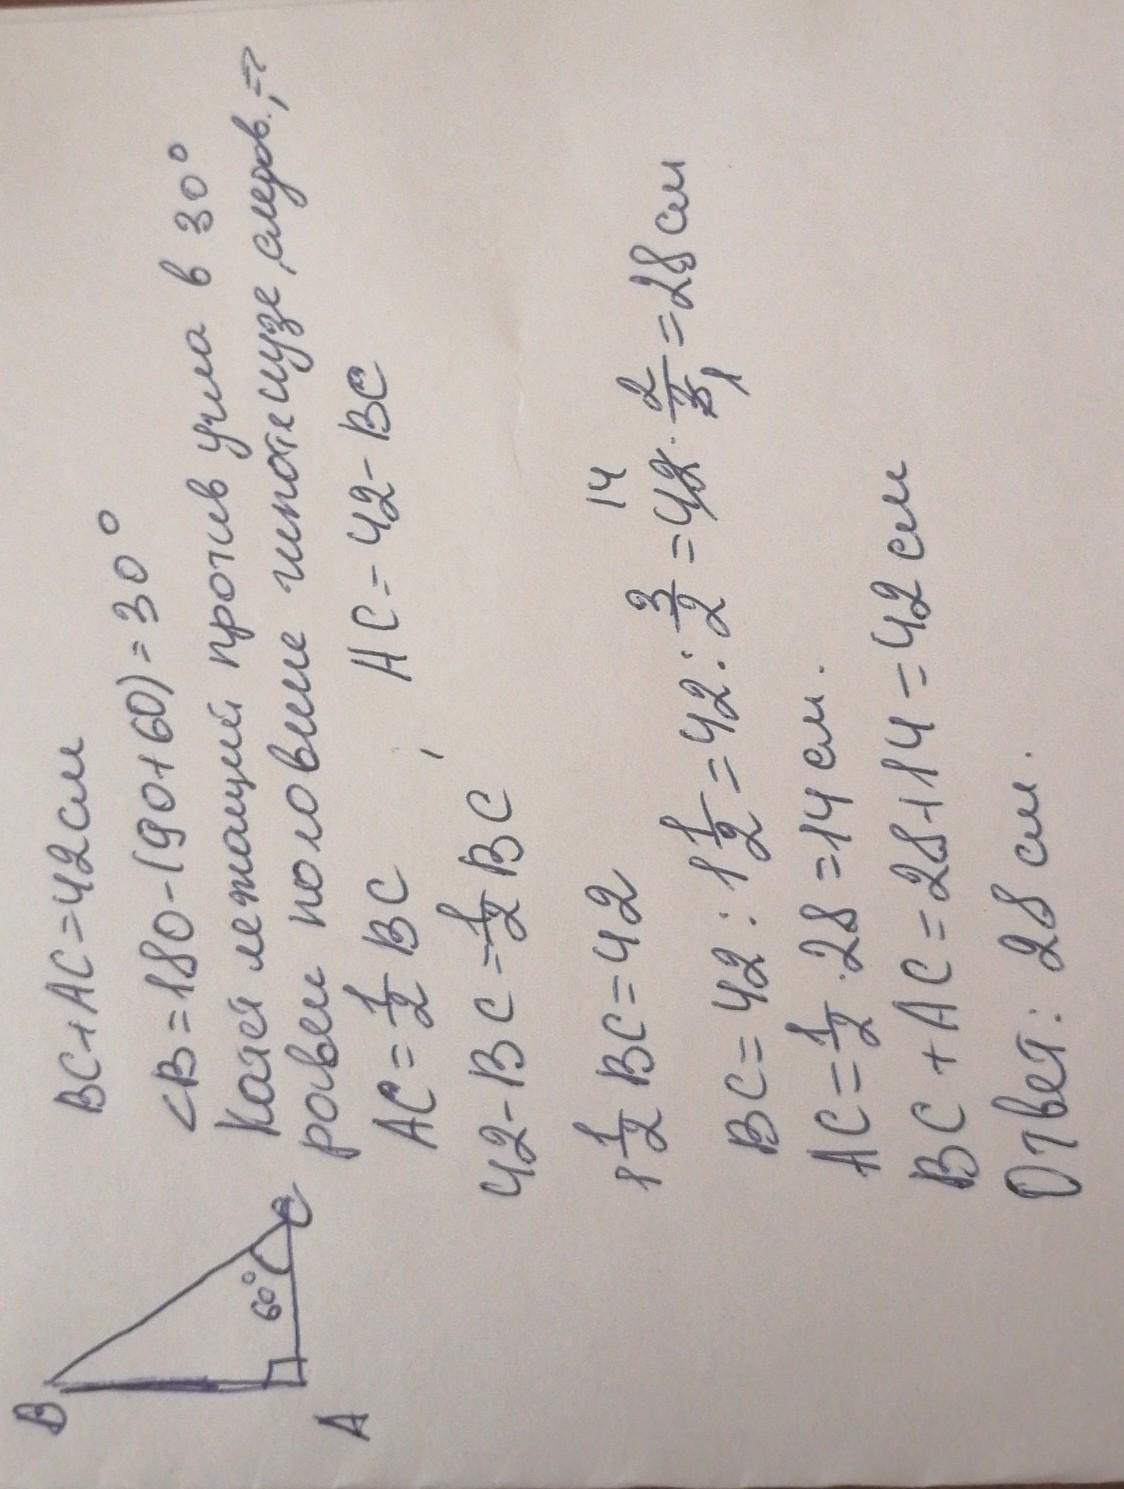 BC+AC=42см
B
60°
A
C
∠B=180-(90+60)=30°
Катет лежащий против угла в 30°
равен половине гипотенузе, следов.,=>
AC=1/2 BC , AC=42-BC
42-BC=1/2 BC
1 1/2 BC=42
BC=42:1 1/2=42:3/2=42·2/3=28см
14
1
AC=1/2·28=14см.
BC+AC=28+14=42см
Ответ: 28см.